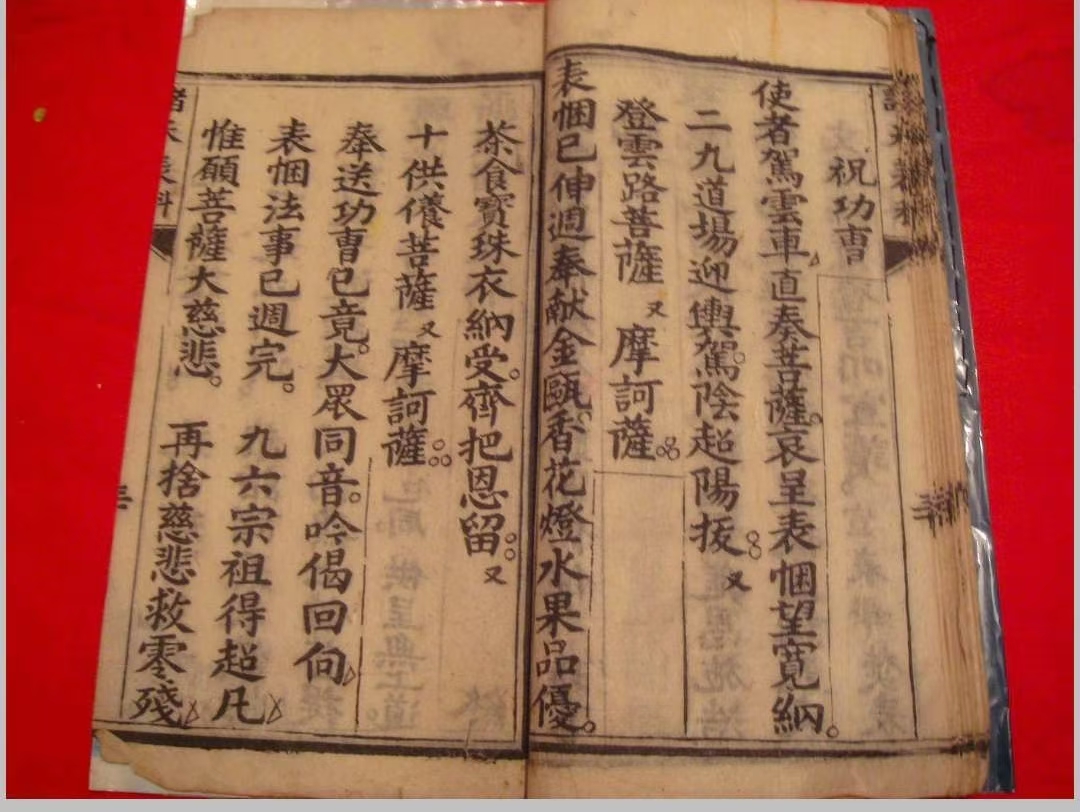 祝功曹
使者駕雲車直奏菩薩。哀呈表悃望寬納。
二九道場迎輿駕。陰超陽拔。又
登雲路菩薩 又 摩訶薩。
表悃已伸週奉献金甌。香花燈水果品優。
茶食寶珠衣納受。齊把恩留。又
十供儀菩薩 又 摩訶薩。
奉送功曹已竟。大眾同音。吟偈回向
表悃法事已週完。 九六宗祖得超凡
惟願菩薩大慈悲。 再捨慈悲救零殘
三